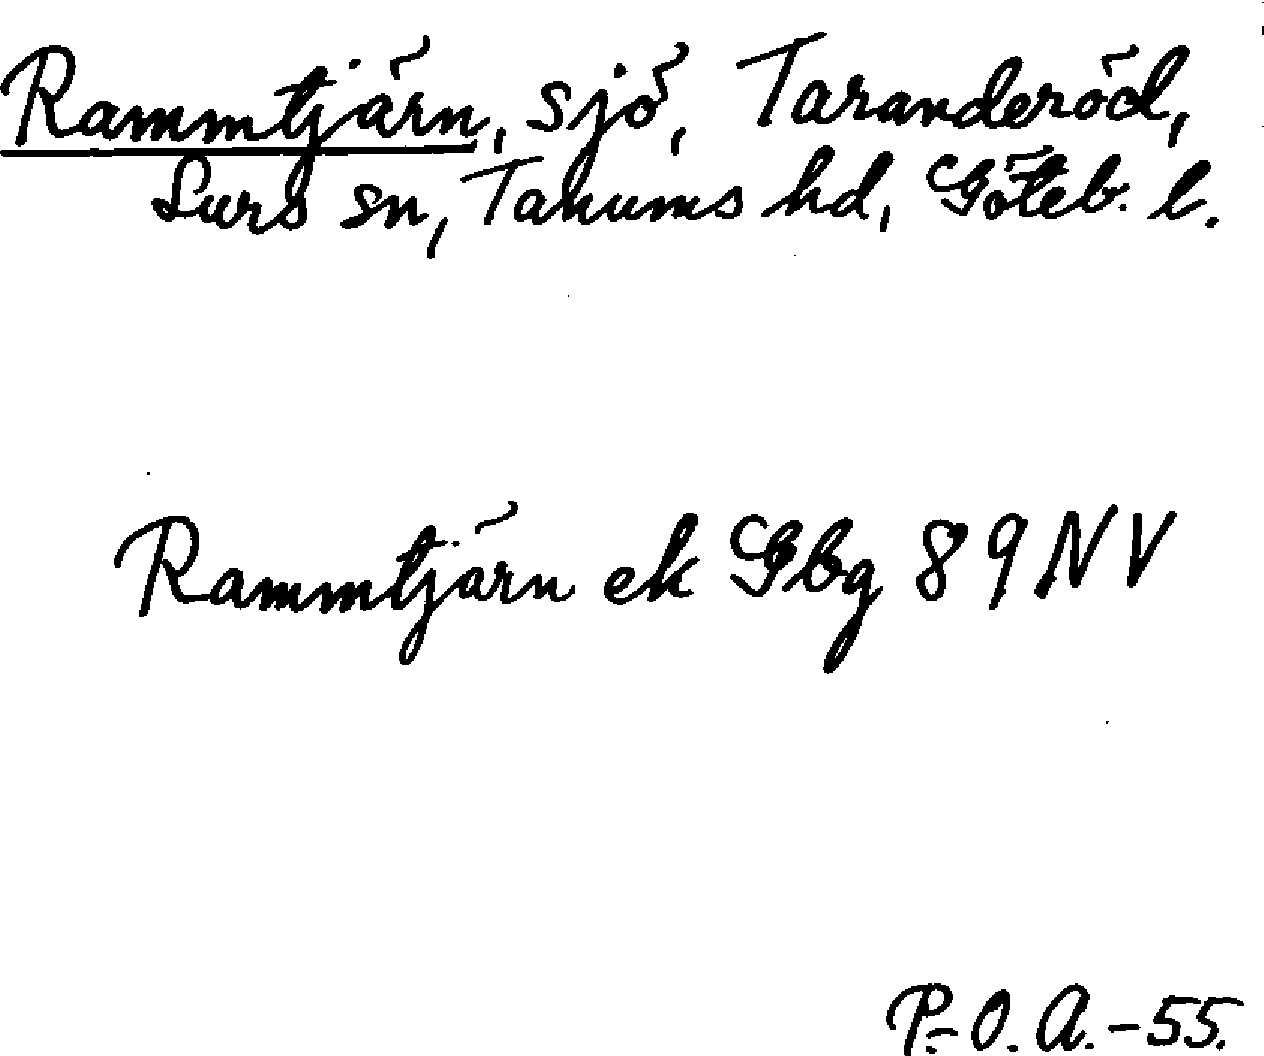 Rammtjärn, sjö, Taranderöd,
Lurs sn, Tanums hd, Göteb. l.
Rammtjärn ek Gbg 89 NV
P.-O. A. -55.